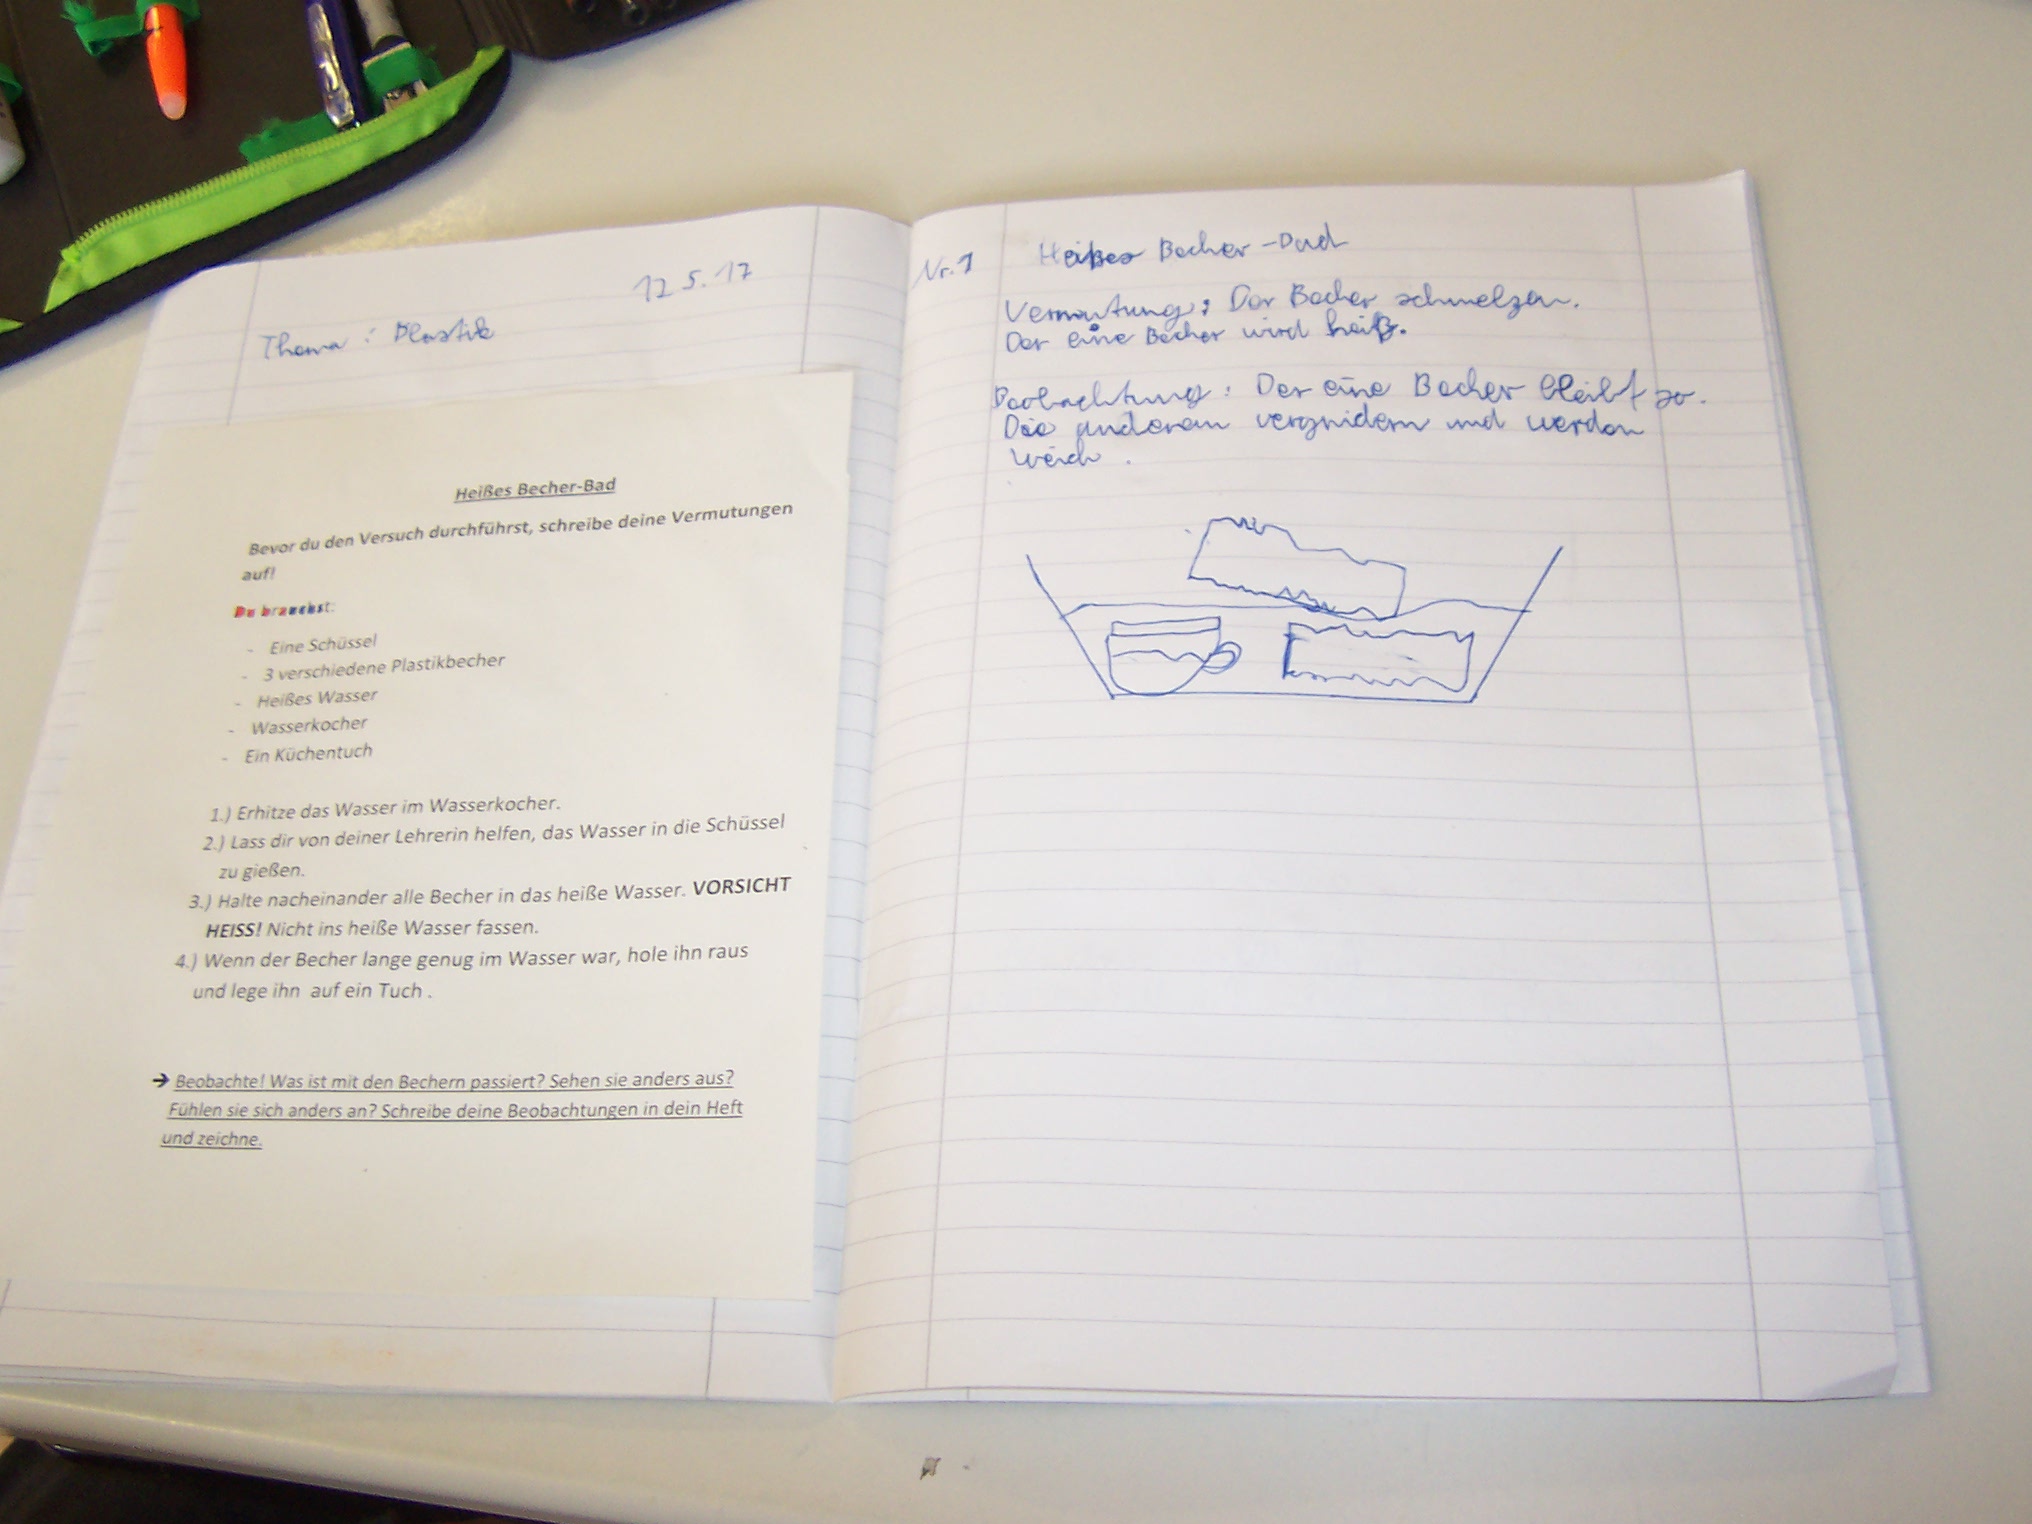 12.5.17
Thema: Plastik
Heißes Becher-Bad
Bevor du den Versuch durchführst, schreibe deine Vermutungen
auf!
Du brauchst:
- Eine Schüssel
- 3 verschiedene Plastikbecher
- Heißes Wasser
- Wasserkocher
- Ein Küchentuch
1.) Erhitze das Wasser im Wasserkocher.
2.) Lass dir von deiner Lehrerin helfen, das Wasser in die Schüssel
zu gießen.
3.) Halte nacheinander alle Becher in das heiße Wasser. VORSICHT
HEISS! Nicht ins heiße Wasser fassen.
4.) Wenn der Becher lange genug im Wasser war, hole ihn raus
und lege ihn auf ein Tuch .
➔ Beobachte! Was ist mit den Bechern passiert? Sehen sie anders aus?
Fühlen sie sich anders an? Schreibe deine Beobachtungen in dein Heft
und zeichne.
Nr. 1 Heißes Becher-Bad
Vermutung: Der Becher schmelzen.
Der eine Becher wird heiß.
Beobachtung: Der eine Becher bleibt so.
Die anderen und werden
weich.